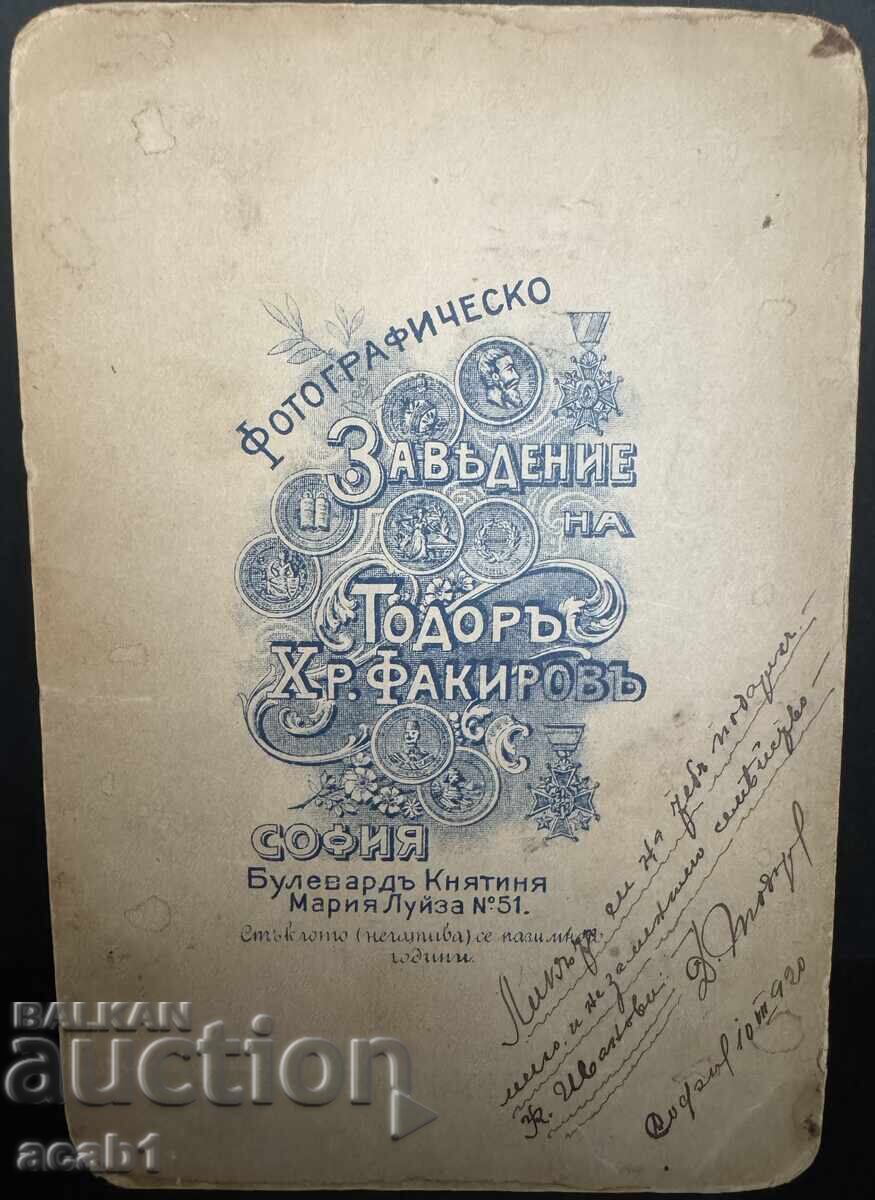 Фотографическо
Заведение
на
Тодоръ
Хр. Факировъ
София
Булевардъ Княтиня
Мария Луйза №51.
Стъклото (негатива) се пази много
години.
Ликътъ си на тебъ подарявамъ
мило и незаменимо семейство
Ж. Иванови. Д. Тодоровъ
София 10 III 920
BALKAN
auction
acab1